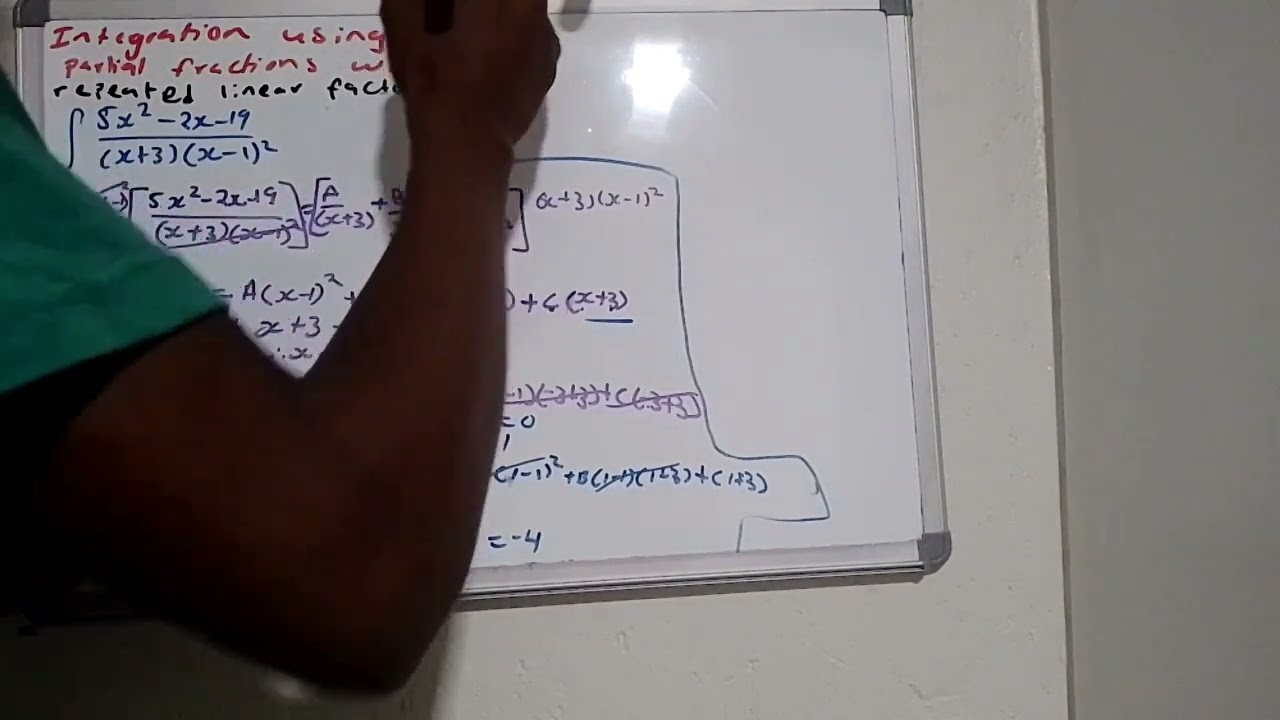 Integration using
partial fractions w
repeated linear fact
∫ 5x² -2x-19
(x+3)(x-1)²
[5x²-2x-19 / (x+3)(x-1)²] = [A / (x+3) + B ] (x+3)(x-1)²
= A(x-1)² + ) + C (x+3)
x+3
∴x
-1)(-3+3)+C(-3+3)
=0
1
(1-1)² +B(1-1)(1+3)+C(1+3)
=-4